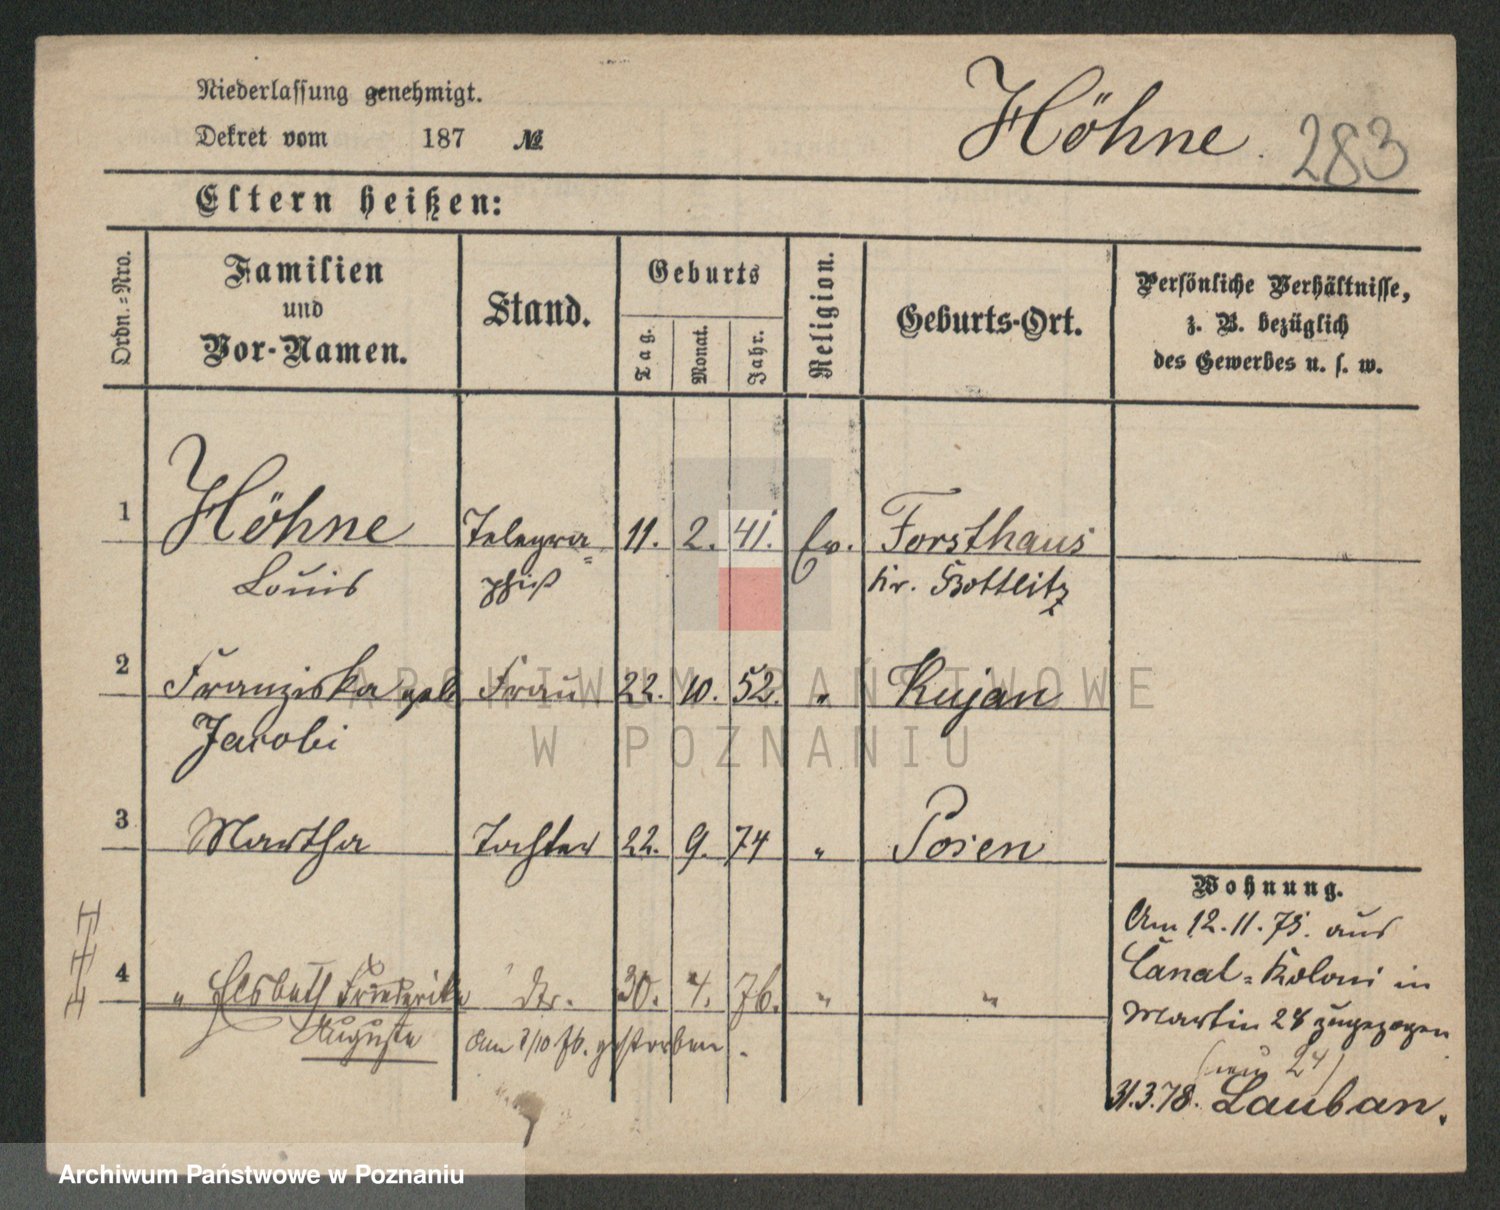 Niederlassung genehmigt.
Höhne. 283
Dekret vom 187 №
Eltern heißen:
Ordn.-Nro.
Familien
und
Vor-Namen.
Stand.
Geburts
Tag.
Monat.
Jahr.
Religion.
Geburts-Ort.
Persönliche Verhältnisse,
z. B. bezüglich
des Gewerbes u. s. w.
1 Höhne Telegra= 11. 2. 41. Ev. Forsthaus
Louis phist Kr. Bottlitz
2 Franziska geb Frau 22. 10. 52. " Kujan
Jacobi
3 Martha Tochter 22. 9. 74 " Posen
Wohnung.
Am 12.11.75. aus
Canal=Koloni in
Martin 28 zugezogen
(neu 24)
31.3.78. Lauban.
4 " Elsbeth Friederike Tr. 30. 4. 76. " "
Auguste Am 7/10 76. gestorben.
ARCHIWUM PAŃSTWOWE
W POZNANIU
Archiwum Państwowe w Poznaniu